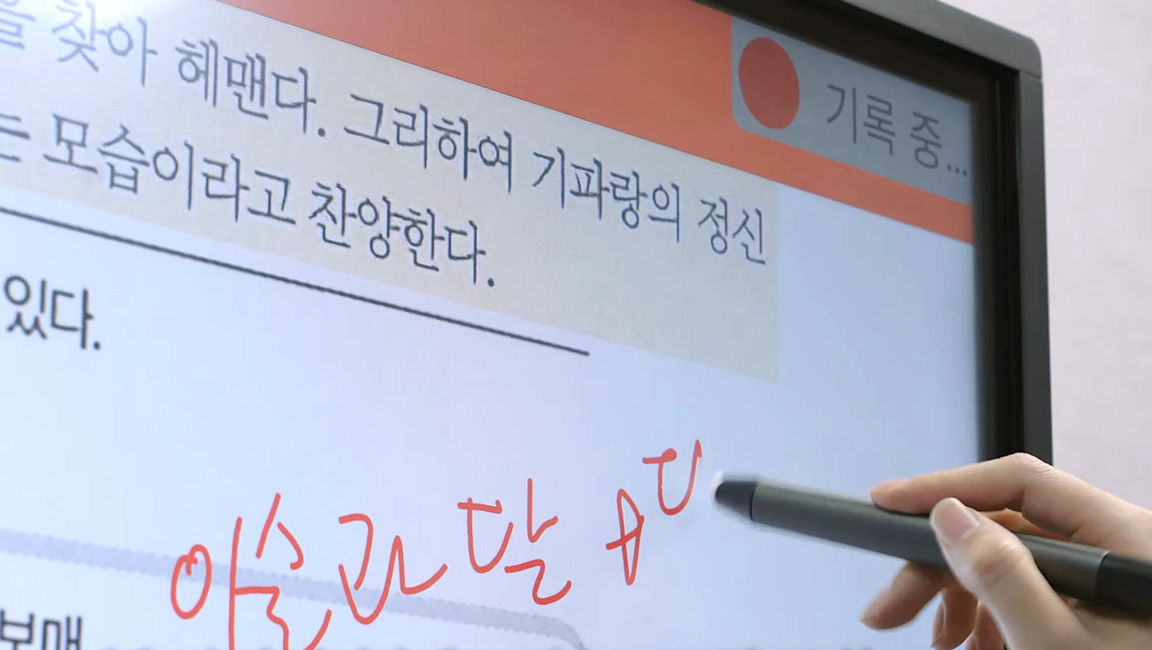 을 찾아 헤맨다. 그리하여 기파랑의 정신
는 모습이라고 찬양한다.
기록 중...
있다.
달
보매